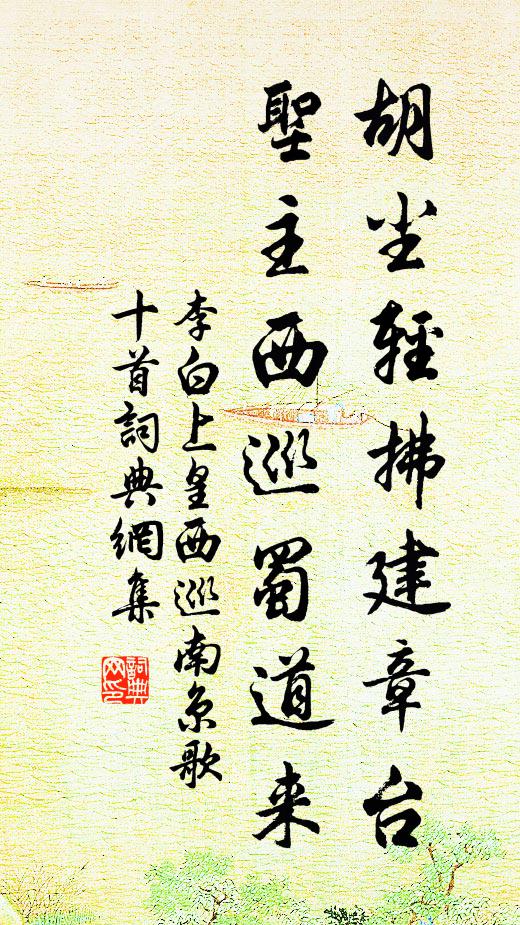 胡尘輕拂建章台
聖主西巡蜀道来
李白上皇西巡南京歌
十首詞典網集
詞典网印